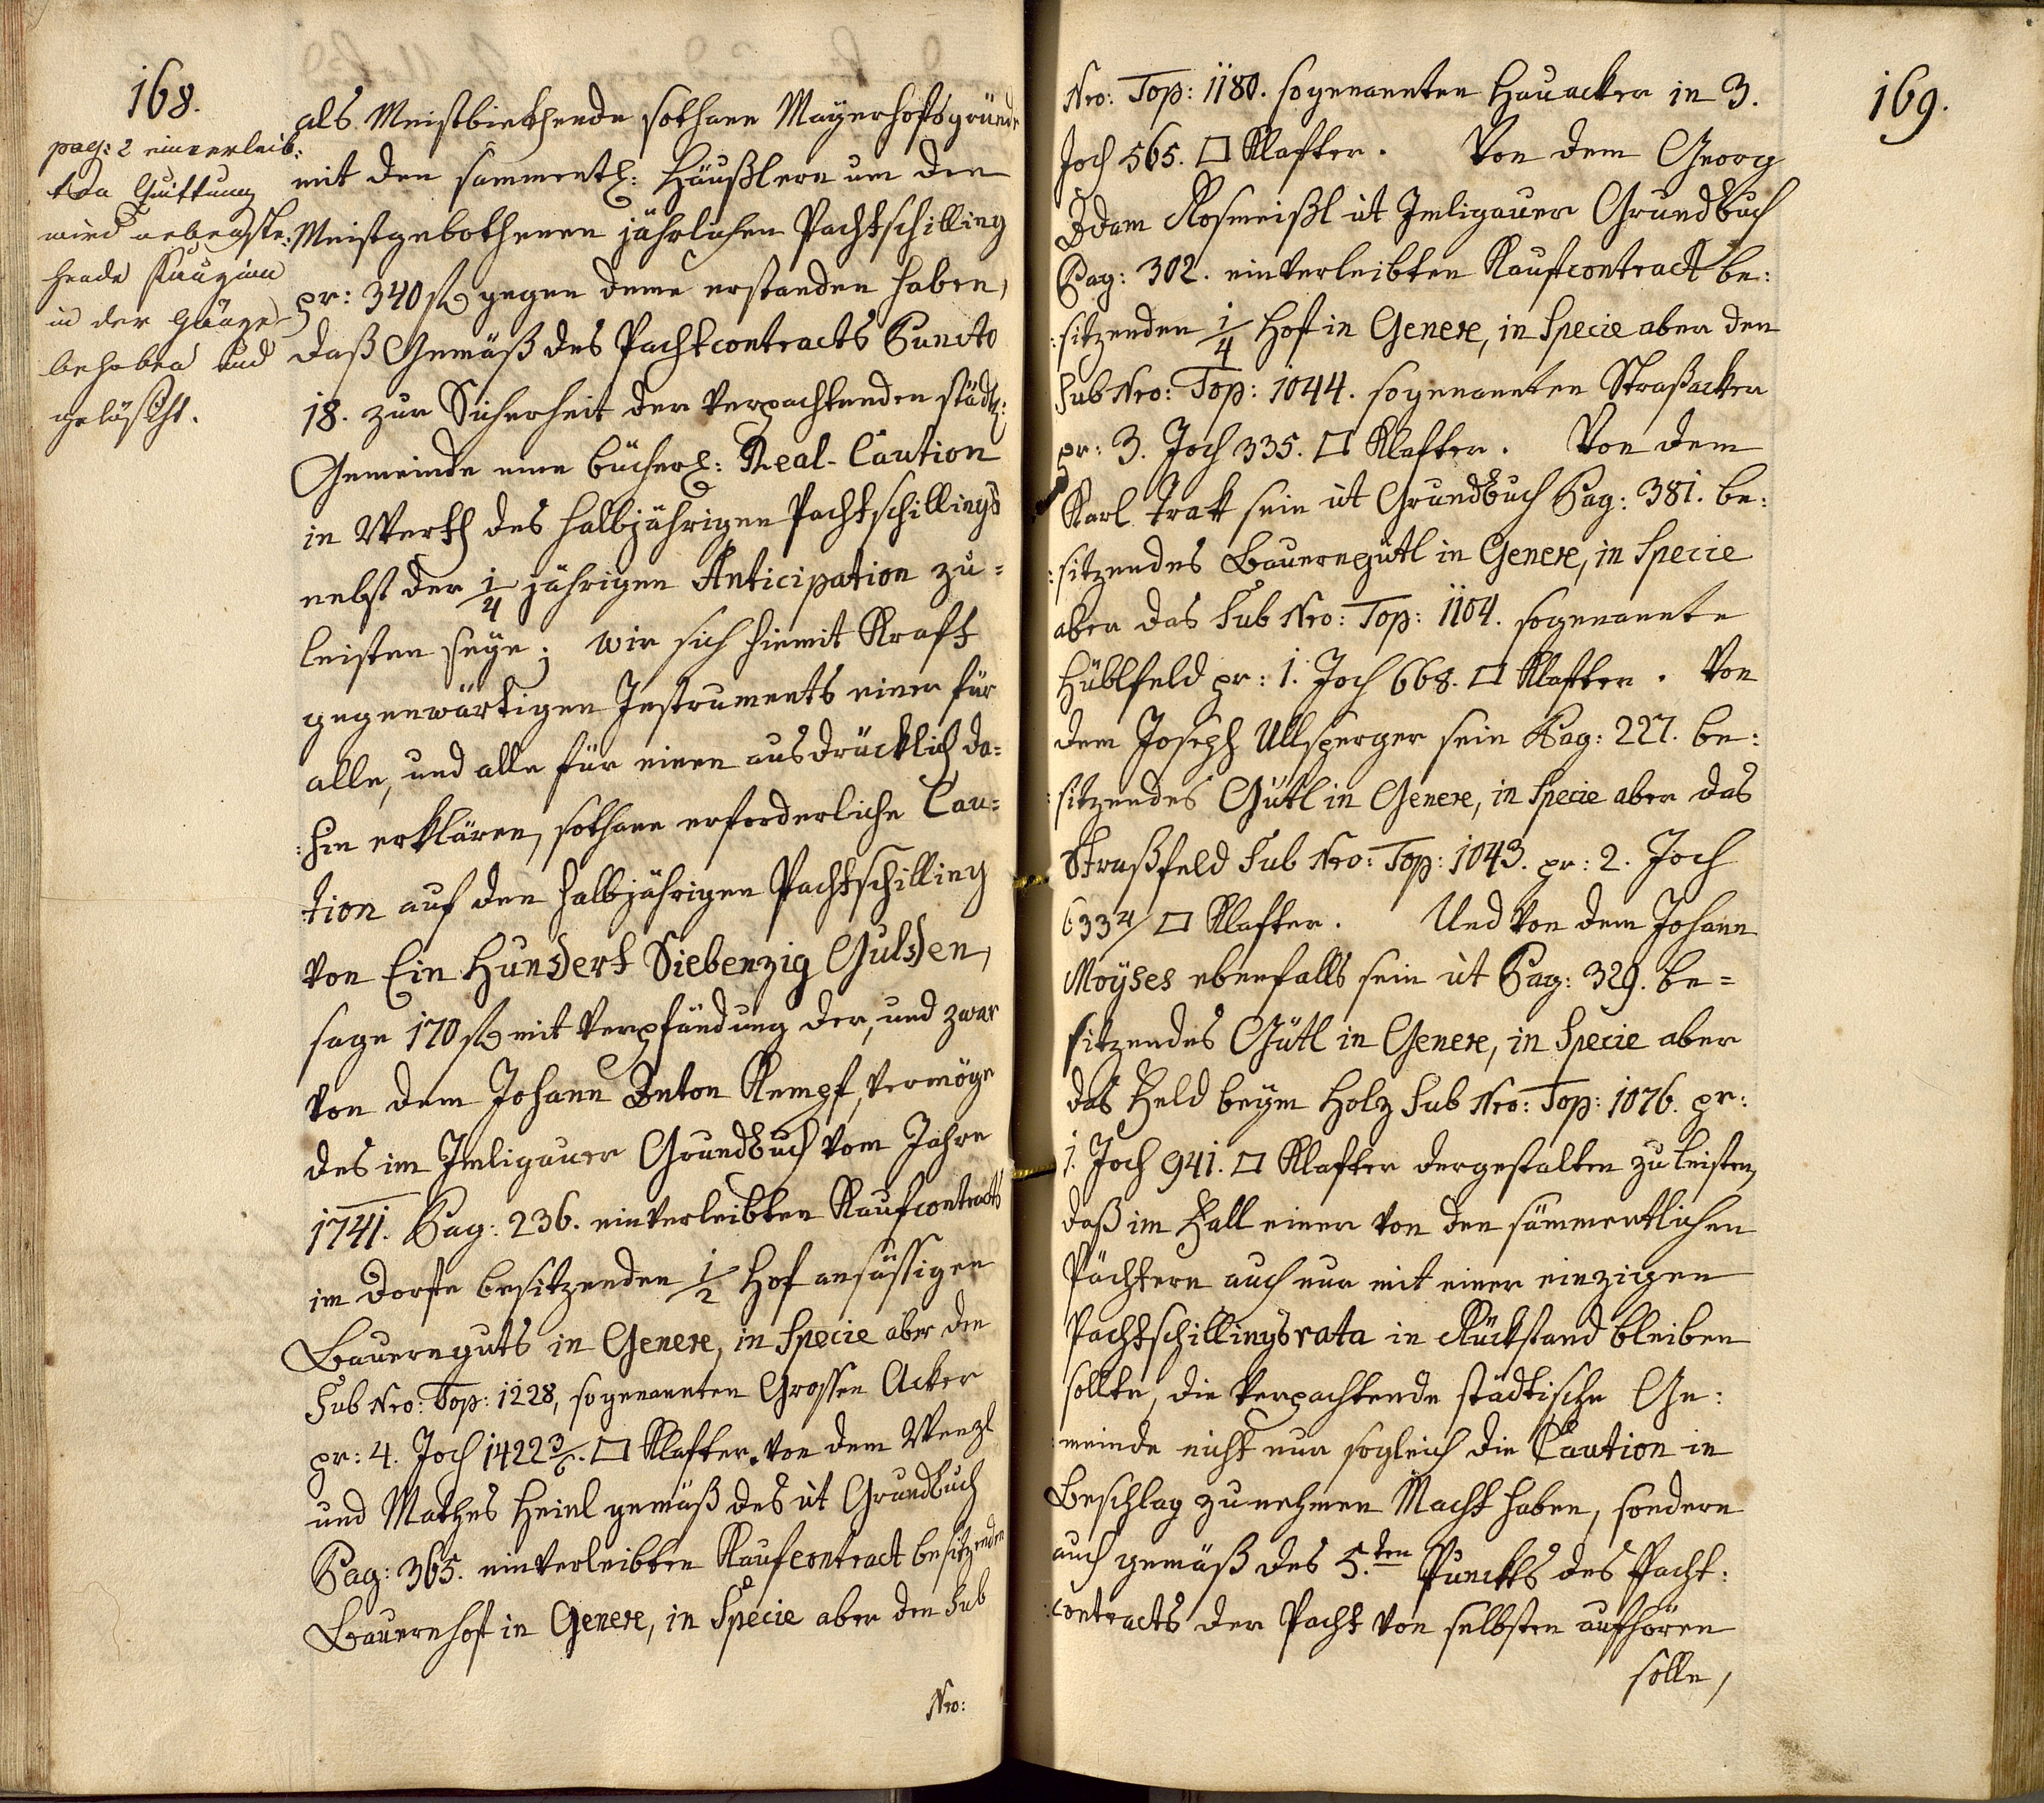 168.
pag: 2 einverleib:
te Quittung
wird nebenste:
hende Kauzion
in der Gänze
behoben und
gelöscht.
als Meistbiethende sothane Mayerhofsgründe
mit den sammentl: Häußlern um den
Meistgebothenen jährlichen Pachtschilling
pr: 340 f gegen deme erstanden haben,
daß Gemäß des Pachtcontracts Puncto
18. zur Sicherheit der Verpachtenden städt:
Gemeinde eine bücherl: Real-Caution
in Werth des halbjährigen Pachtschillings
nebst der 1/4 jährigen Anticipation zu=
leisten seye; wir sich hiemit Kraft
gegenwärtigen Instruments einer für
alle, und alle für einen ausdrücklich da=
:hin erklären, sothane erforderliche Cau=
:tion auf den halbjährigen Pachtschilling
von Ein Hundert Siebenzig Gulden,
sage 170 f mit Verpfändung der, und zwar
von dem Johann Anton Kempf, vermöge
des im Imligauer Grundbuch vom Jahre
1741. Pag: 236. einverleibten Kaufcontracts
im Dorfe besitzenden 1/2 Hof ansässigen
Bauernguts in Genere, in Specie aber den
Sub Nro: Top: 1228, sogenannten Grossen Acker
pr: 4. Joch 1422 3/6. □ Klafter. Von dem Wenzl
und Mathes Heinl gemäß des üt Grundbuch
Pag: 365. einverleibten Kaufcontract besitzenden
Bauernhof in Genere, in Specie aber den Sub
Nro:
169.
Nro: Top: 1180. sogenannten Hauacker in 3.
Joch 565. □ Klafter. Von dem Georg
Adam Rosmeißl üt Imligauer Grundbuch
Pag: 302. einverleibten Kaufcontract be:
:sitzenden 1/4 Hof in Genere, in Specie aber den
Sub Nro: Top: 1044. sogenannten Straßacker
pr: 3. Joch 335. □ Klafter. Von dem
Karl Trak sein üt Grundbuch Pag: 381. be:
:sitzendes Bauerngütl in Genere, in Specie
aber das Sub Nro: Top: 1104. sogenannte
Hüblfeld pr: 1. Joch 668. □ Klafter. Von
dem Joseph Ullsperger sein Pag: 227. be:
:sitzendes Gütl in Genere, in Specie aber das
Straßfeld Sub Nro: Top: 1043. pr: 2. Joch
□ Klafter. Und von dem Johann
Moÿses ebenfalls sein üt Pag: 329. be=
sitzendes Gütl in Genere, in Specie aber
das Feld beym Holz Sub Nro: Top: 1076. pr:
1. Joch 941. □ Klafter dergestalten zu leisten,
daß im Fall einer von den sämmentlichen
Pächtern auch nur mit einer einzigen
Pachtschillingsrata in Rückstand bleiben
sollte, die Verpachtende städtische Ge:
:meinde nicht nur sogleich die Caution in
Beschlag zu nehmen Macht haben, sondern
auch gemäß des 5.ten Puncts des Pacht:
:contracts der Pacht von selbsten aufhören
solle,